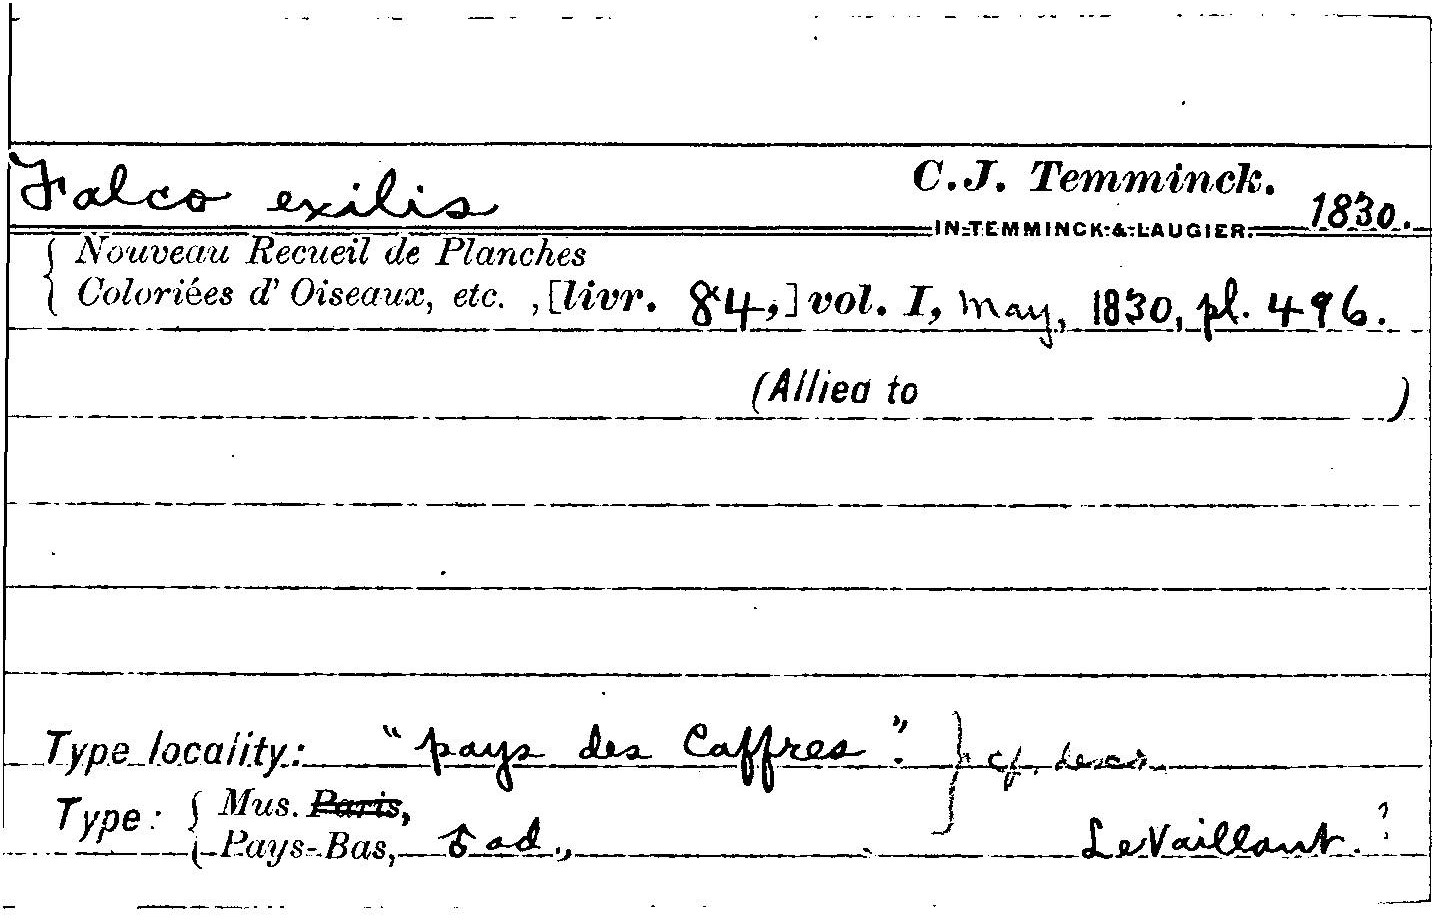 Falco exilis C.J. Temminck. 1830.
IN TEMMINCK & LAUGIER.
Nouveau Recueil de Planches
Coloriées d' Oiseaux, etc. , [livr. 84,] vol. I, May, 1830, pl. 496.
(Allied to )
Type locality: "pays des Caffres". } cf. descr.
Type: { Mus. Paris,
Pays-Bas, ad., LeVaillant. ?